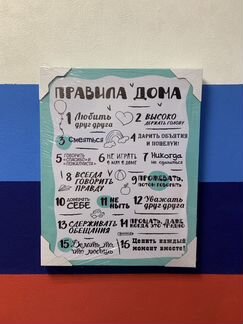 ПРАВИЛА ДОМА
1 Любить друг друга
2 ВЫСОКО ДЕРЖАТЬ ГОЛОВУ
3 Смеяться
4 ДАРИТЬ ОБЪЯТИЯ И ПОЦЕЛУИ!
5 ГОВОРИТЬ «СПАСИБО» И «ПОЖАЛУЙСТА»
6 НЕ ИГРАТЬ В МЯЧ В ДОМЕ
7 Никогда не сдаваться
8 ВСЕГДА ГОВОРИТЬ ПРАВДУ
9 ПРОЖЕВАТЬ, ПОТОМ ГОВОРИТЬ
10 ВЕРИТЬ СЕБЕ
11 НЕ НЫТЬ
12 Уважать друг друга
13 СДЕРЖИВАТЬ ОБЕЩАНИЯ
14 ПРОЩАТЬ, ДАЖЕ КОГДА ЭТО ТРУДНО
15 Делать то, что люблю
16 Ценить каждый момент вместе!